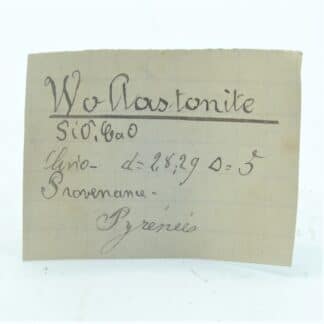 Wollastonite
SiO², CaO
Clino- d= 28,29 D= 5
Provenance -
Pyrénées